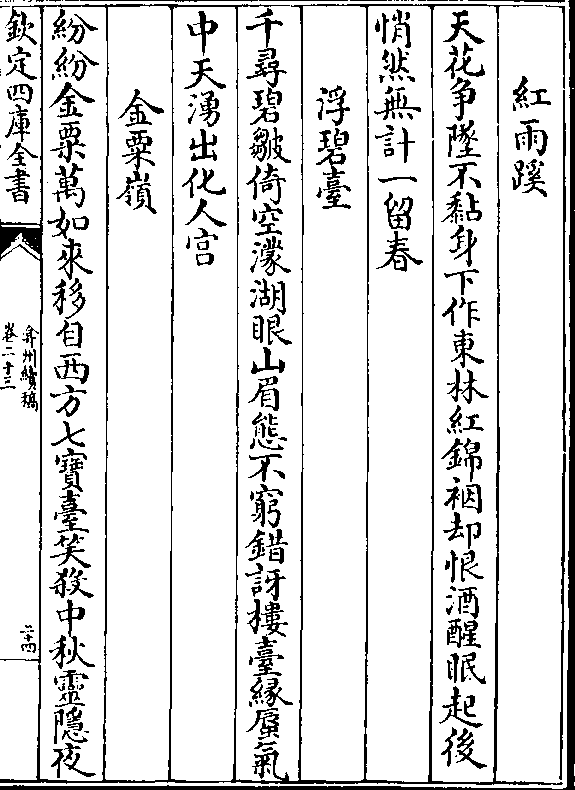 紅雨蹊
天花争墜不黏身下作東林紅錦裀却恨酒醒眠起後
悄然無計一留春
浮碧臺
千尋碧皺倚空濛湖眼山眉態不窮錯訝樓臺緣蜃氣
中天湧出化人宫
金粟嶺
紛紛金粟萬如來移自西方七寶臺笑殺中秋靈隱夜
欽定四庫全書
弇州續稿
卷二十三
二十四